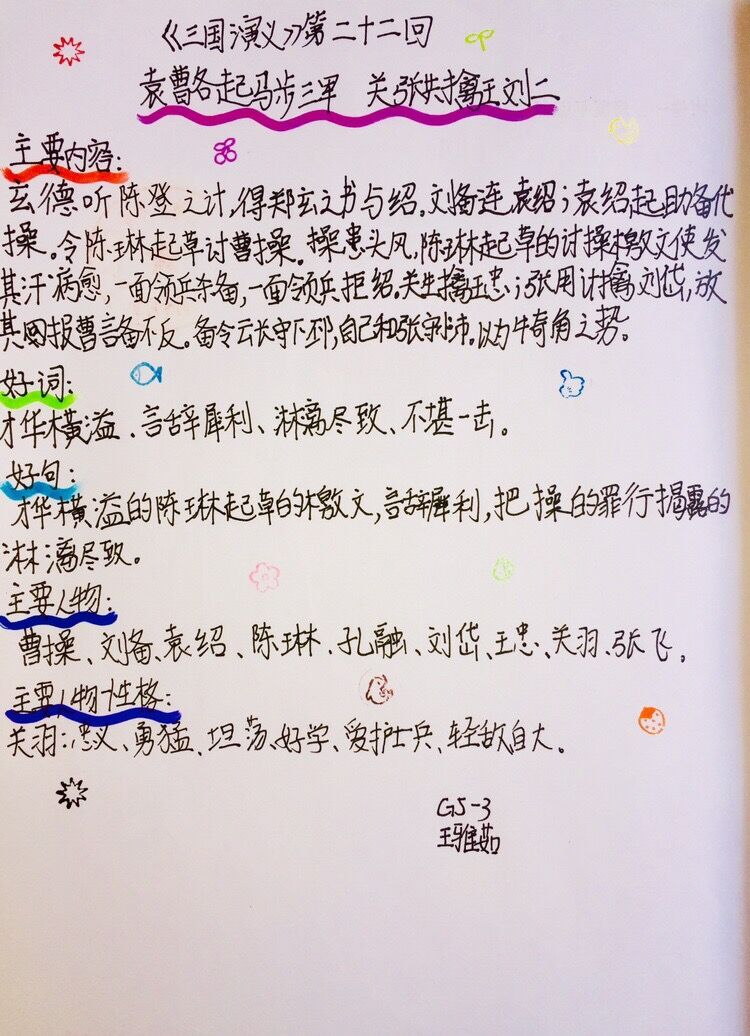 《三国演义》第二十二回
袁曹各起马步三军 关张共擒王刘二
主要内容:
玄德听陈登之计,得郑玄之书与绍。刘备连袁绍;袁绍起助备代
操。令陈琳起草讨曹操。操患头风,陈琳起草的讨操檄文使发
其汗病愈,一面领兵杀备,一面领兵拒绍。关生擒王忠;张用计擒刘岱,放
其回报曹言备不反。备令云长守下邳,自己和张守沛。以为牛奇角之势。
好词:
才华横溢、言辞犀利、淋漓尽致、不堪一击。
好句:
才华横溢的陈琳起草的檄文,言辞犀利,把操的罪行揭露的
淋漓尽致。
主要人物:
曹操、刘备、袁绍、陈琳、孔融、刘岱、王忠、关羽、张飞。
主要人物性格:
关羽:忠义、勇猛、坦荡、好学、爱护士兵、轻敌自大。
G5-3
王雅茹